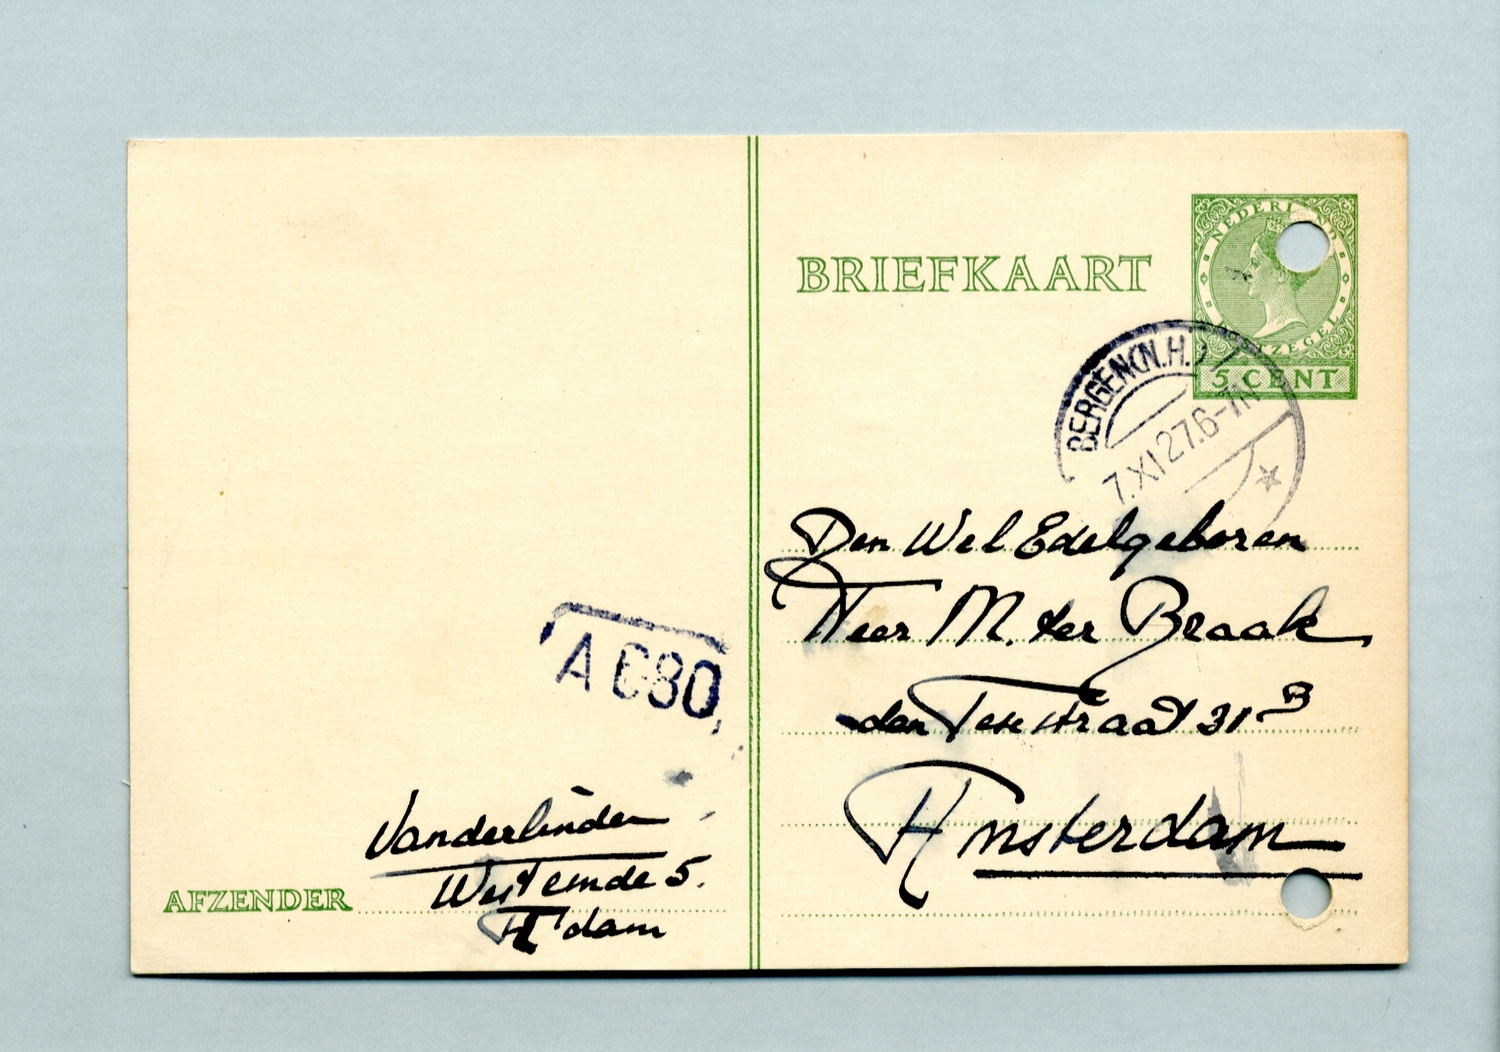 BRIEFKAART
NEDERLAND
POSTZEGEL
5 CENT
BERGEN (N.H.)
7.XI 27.6-7N
Den Wel Edelgeboren
Heer M. ter Braak
den Texstraat 31 B
Amsterdam
A 680
Vanderlinden
Westeinde 5.
AFZENDER
A'dam